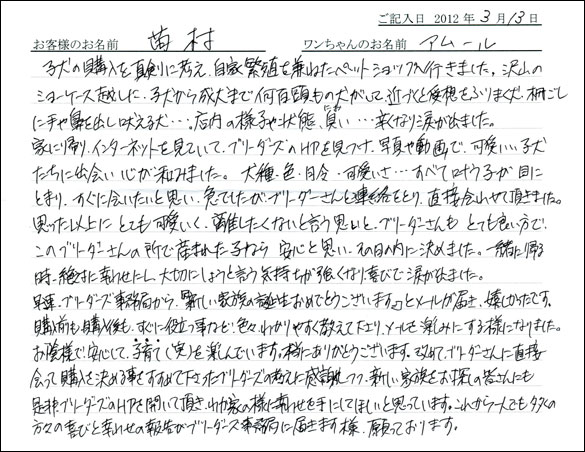 ご記入日 2012年3月13日
お客様のお名前 苗村 ワンちゃんのお名前 アムール
子犬の購入を真剣に考え、自家繁殖を兼ねたペットショップへ行きました。沢山の
ショーケース越しに、子犬から成犬まで何百頭もの犬がいて、近づくと愛想をふりまく犬、柵ごし
に手や鼻を出し吠える犬…。店内の様子や状態、臭い…悲しくなり涙が出ました。
家に帰り、インターネットを見ていて、ブリーダーズのHPを見つけ、写真や動画で、可愛いい子犬
たちに出会い 心が和みました。 犬種・色・日令・可愛いさ…すべて叶う子が目に
とまり、すぐに会いたいと思い、急でしたが、ブリーダーさんと連絡をとり、直接会わせて頂きました。
思った以上に とても可愛いく、離したくないと言う思いと、ブリーダーさんも とても良い方で、
このブリーダーさんの所で産まれた子なら 安心と思い、その日の内に決めました。一緒に帰る
時、絶対に幸わせにし、大切にしようと言う気持ちが強くなり喜びで涙が出ました。
早速、ブリーダーズ事務局から、「新しい家族の誕生おめでとうございます」とメールが届き、嬉しかったです。
購入前も購入後も、すぐに役立つ事など、色々、わかりやすく教えて下さり、メールを楽しみにする様になりました。
お陰様で安心して、子育て(犬)を楽しんでいます。本当にありがとうございます。改めて、ブリーダーさんに直接
会って購入を決める事をすすめて下さったブリーダーズの考えに感謝しつつ、新しい家族をお探しの皆さんにも
是非ブリーダーズのHPを開いて頂き、わが家の様に幸わせを手にしてほしいと思っています。これから一人でも多くの
方々の喜びと幸わせの報告がブリーダーズ事務局に届きます様、願っております。